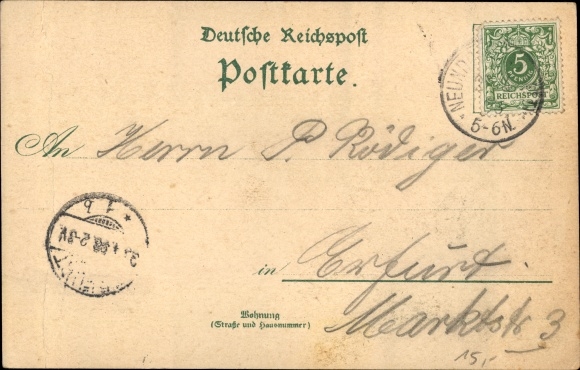 Deutsche Reichspost
Postkarte.
5
PFENNIG
REICHSPOST
5-6N.
An Herrn P. Rödiger
1 b
2-3N
in Erfurt.
Wohnung
(Straße und Hausnummer)
Marktstr 3
15,-